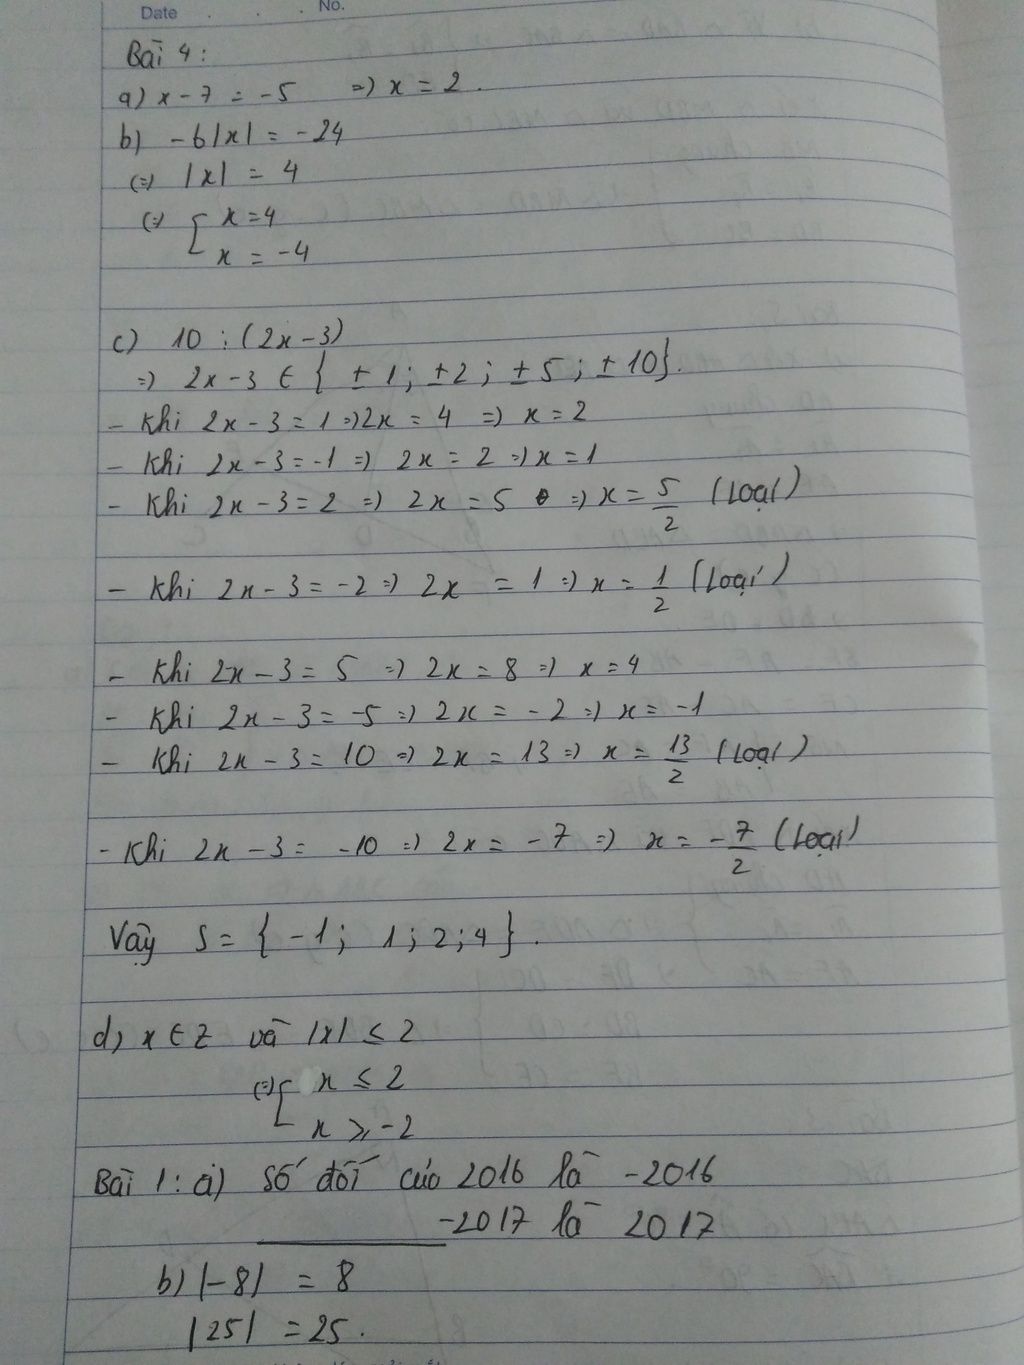 Date . . . No.
Bài 4:
a) x - 7 = -5 => x = 2.
b) -6|x| = -24
(=) |x| = 4
(=) [ x = 4
x = -4
c) 10 : (2x - 3)
=) 2x - 3 ∈ { ±1 ; ±2 ; ±5 ; ±10}.
- Khi 2x - 3 = 1 =) 2x = 4 =) x = 2
- Khi 2x - 3 = -1 =) 2x = 2 =) x = 1
- Khi 2x - 3 = 2 =) 2x = 5 =) x = 5/2 (Loại)
- Khi 2x - 3 = -2 =) 2x = 1 =) x = 1/2 (Loại)
- Khi 2x - 3 = 5 =) 2x = 8 =) x = 4
- Khi 2x - 3 = -5 =) 2x = -2 =) x = -1
- Khi 2x - 3 = 10 =) 2x = 13 =) x = 13/2 (Loại)
- Khi 2x - 3 = -10 =) 2x = -7 =) x = -7/2 (Loại)
Vậy S = { -1 ; 1 ; 2 ; 4 }.
d) x ∈ Z và |x| ≤ 2
(=) [ x ≤ 2
x ≥ -2
Bài 1: a) Số đối của 2016 là -2016
-2017 là 2017
b) |-8| = 8
|25| = 25.